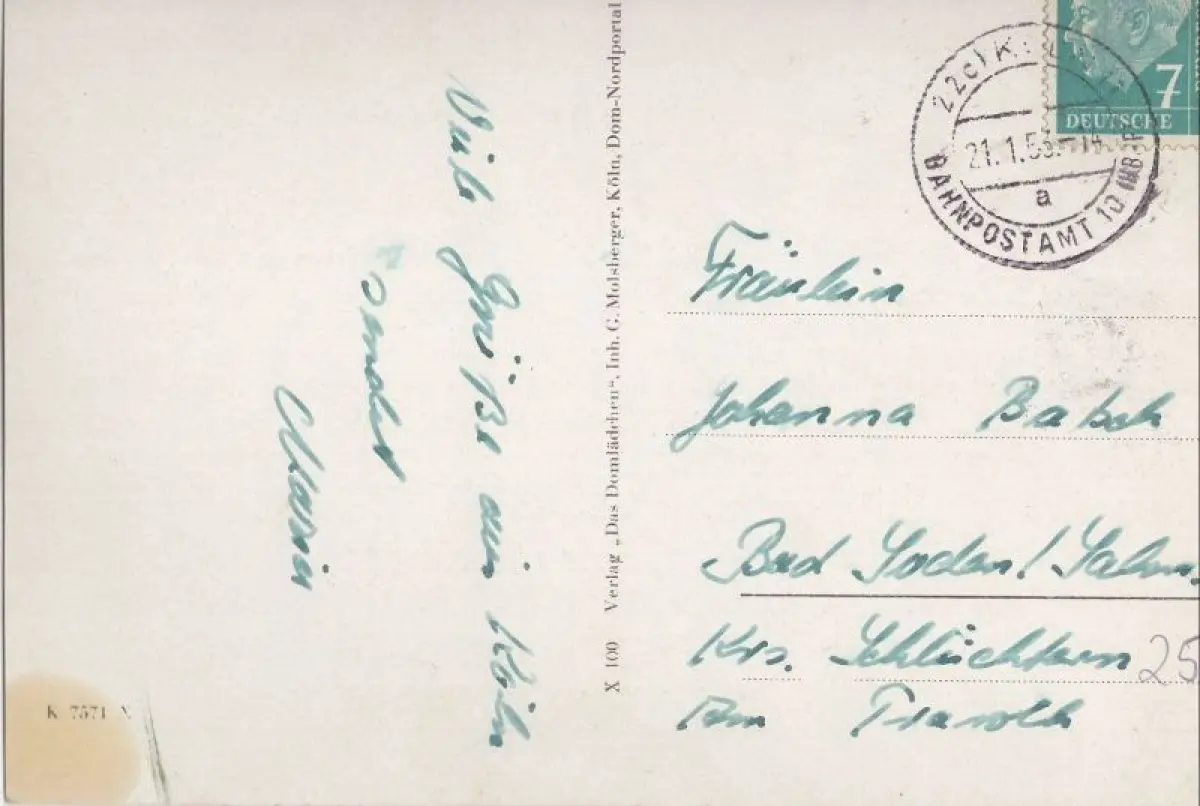 Viele Grüße aus Köln
sendet
Maria
K 7571 X
X 100 Verlag „Das Domlädchen“, Inh. G. Molsberger, Köln, Dom-Nordportal
7
DEUTSCHE
22c) KÖLN
21.1.5 -14
a
BAHNPOSTAMT 10
Fräulein
Johanna
Bad Soden/Salm.
Krs. Schlüchtern
25
Am